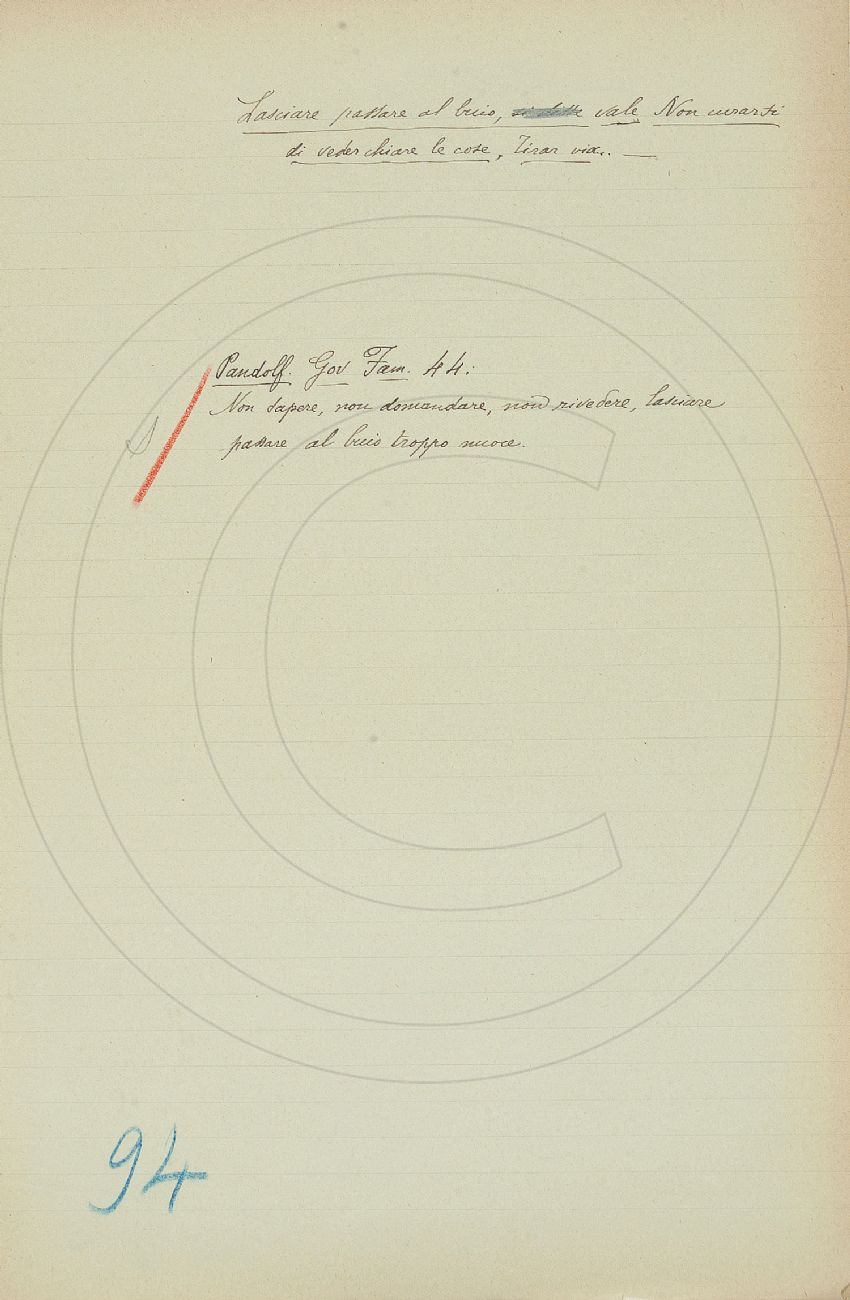 Lasciare passare al buio, si disse vale Non curarsi
di veder chiare le cose, Tirar via. —
Pandolf. Gov Fam. 44:
Non sapere, non domandare, non rivedere, lasciare
passare al buio troppo nuoce.
94